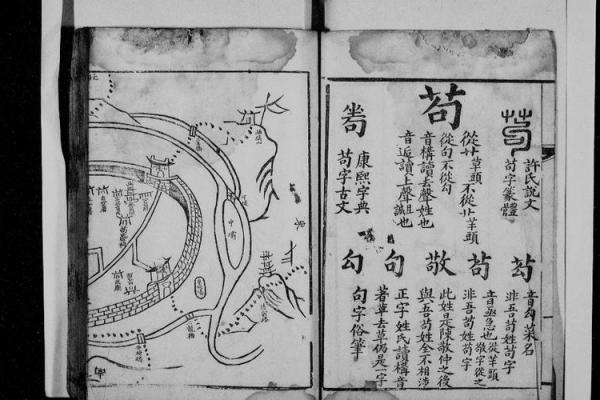 許氏說文
苟字篆體
苟
從艹草頭不從卝羊頭
從句不從勾
音構讀去聲姓也
音近讀上聲誠也
康熙字典
苟字古文
芶
音勾菜名
非吾苟姓苟字
茍
音亟急也從羊頭
敬字從之
非吾苟姓苟字
敬
此姓是陳敬仲之後
與吾苟姓全不相涉
句
正字姓氏讀構音
著草去草仍是一字
勾
句字俗筆